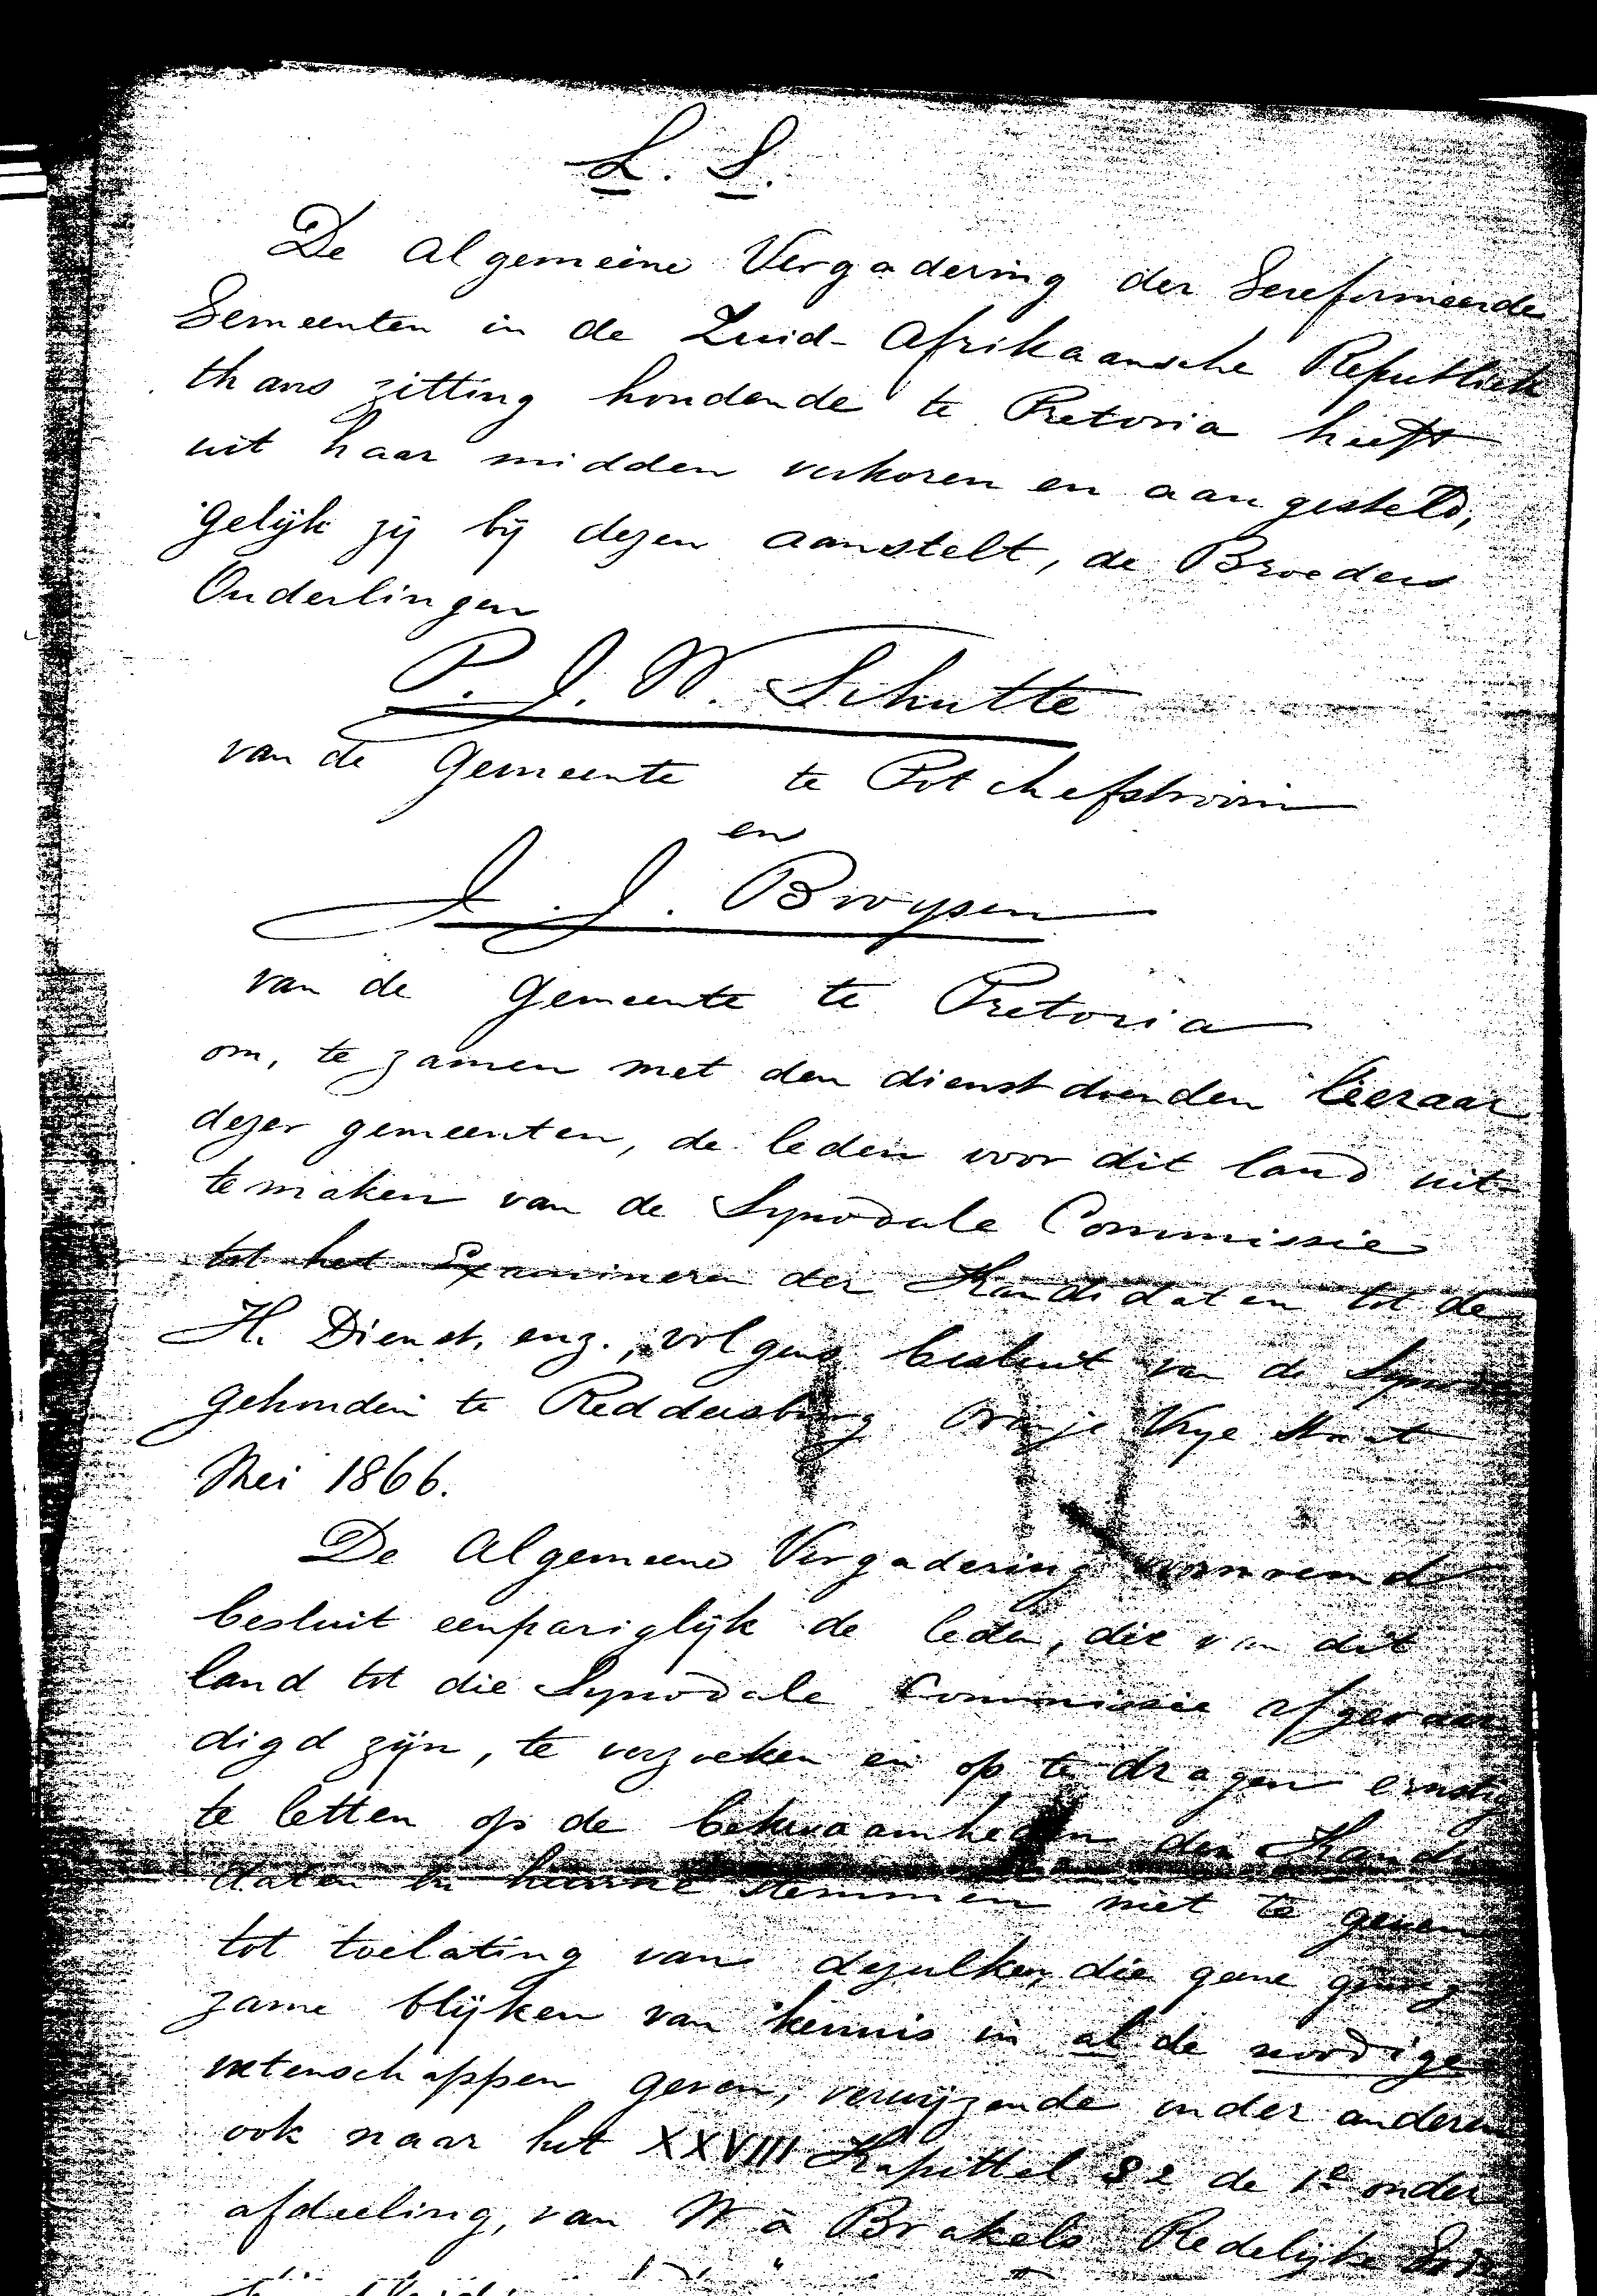 L. S.
De Algemeene Vergadering der Gereformeerde
Gemeenten in de Zuid-Afrikaansche Republiek
thans zitting houdende te Pretoria heeft
uit haar midden verkoren en aangesteld,
gelijk zij bij dezen aanstelt, de Broeders
Ouderlingen
P. J. W. Schutte
van de Gemeente te Potchefstroom
en
J. J. Bruysen
van de Gemeente te Pretoria
om, te zamen met den dienstdoenden leeraar
dezer gemeenten, de leden voor dit land uit
te maken van de Synodale Commissie
tot het Examineren der Kandidaten tot de
H. Dienst, enz., volgens besluit van de Synode
gehouden te Reddersburg Oranje Vrye Staat
Mei 1866.
De Algemeene Vergadering voornoemd
besluit eenpariglijk de leden, die van dit
land tot die Synodale Commissie afgevaar
digd zijn, te verzoeken en op te dragen ernstig
te letten op de bekwaamheden der Kandi
daten en hunne stemmen niet te geven
tot toelating van dezulken die geene genoeg
zame blijken van kennis in al de noodige
wetenschappen geven, verwijzende onder anderen
ook naar het XXVIII Kapittel § 2 de 1e onder
afdeeling, van W à Brakels Redelijke